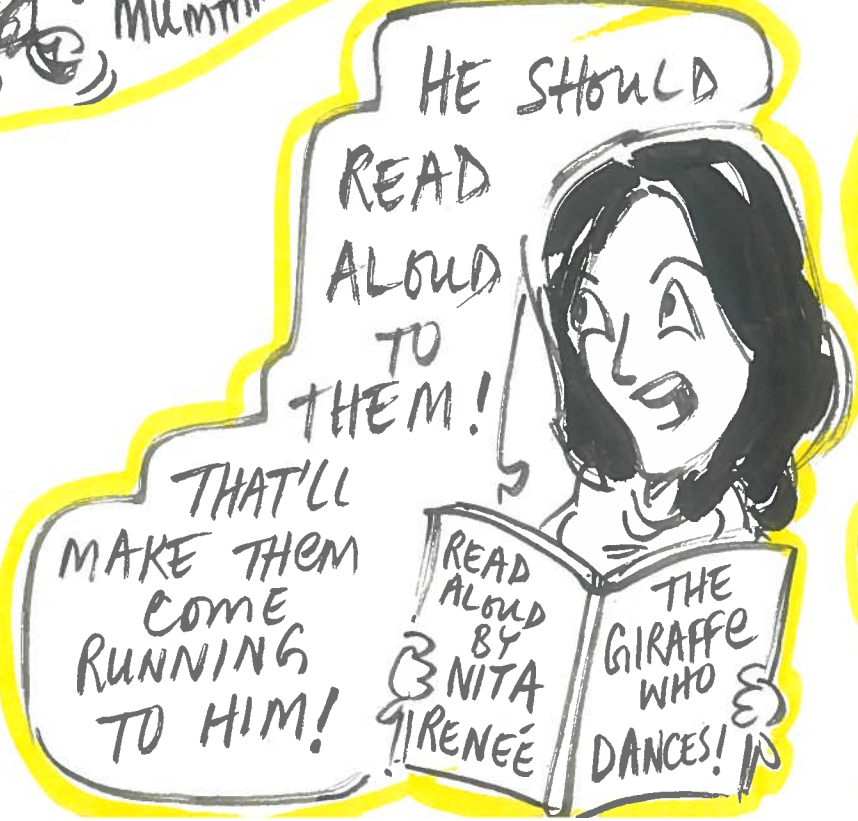 MUMMM
HE SHOULD
READ
ALOUD
TO
THEM!
THAT'LL
MAKE THEM
COME
RUNNING
TO HIM!
READ
ALOUD
BY
NITA
RENEÉ
THE
GIRAFFE
WHO
DANCES!